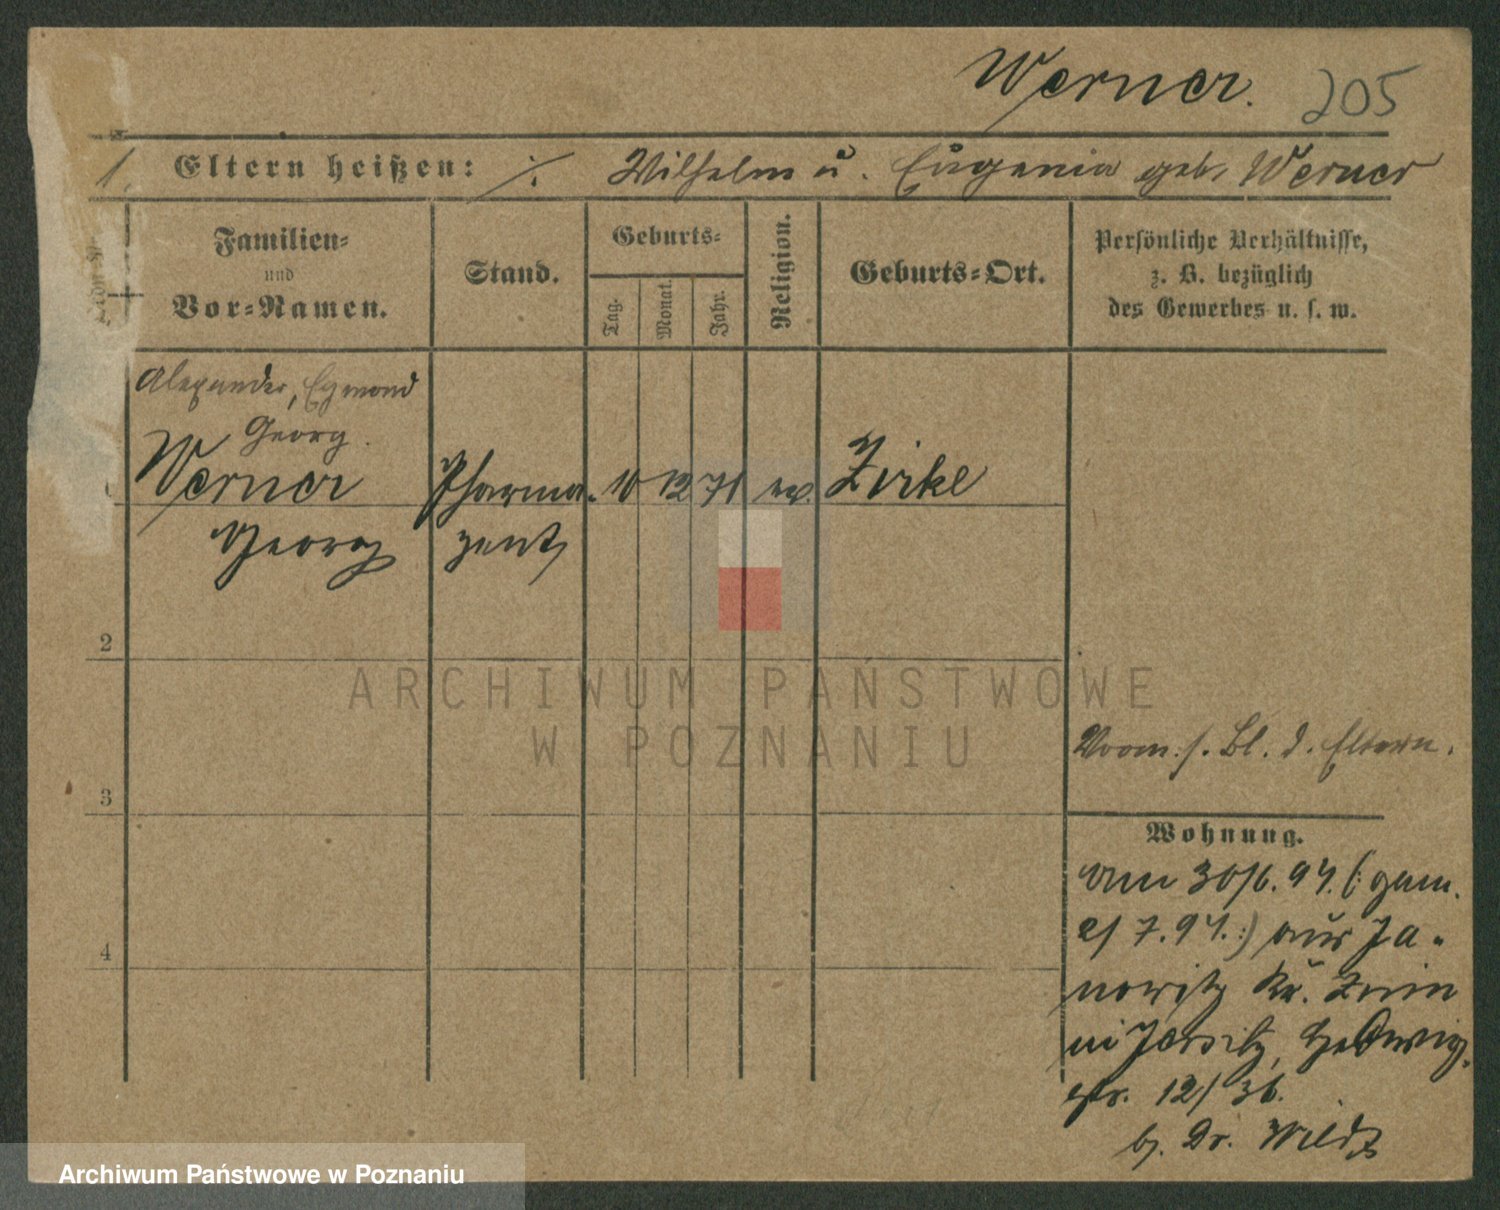 Werner. 205
1. Eltern heißen: ./. Wilhelm u. Eugenia geb. Werner
Familien-
und
Vor-Namen.
Stand.
Geburts-
Tag.
Monat.
Jahr.
Religion.
Geburts-Ort.
Persönliche Verhältnisse,
z. B. bezüglich
des Gewerbes u. s. w.
Alexander, Egmond
Georg.
Werner Pharma- 10 12 71 ev. Zirke
Georg zeut
2
ARCHIWUM PAŃSTWOWE
W POZNANIU
Vorm. s. Bl. d. Eltern.
3
Wohnung.
am 30/6. 94. (: gem.
2/7. 94. :) aus Ja-
nowitz Kr. Znin
in Jersitz, Hedwig
str. 12/36.
b. Dr. Wildt
4
Archiwum Państwowe w Poznaniu